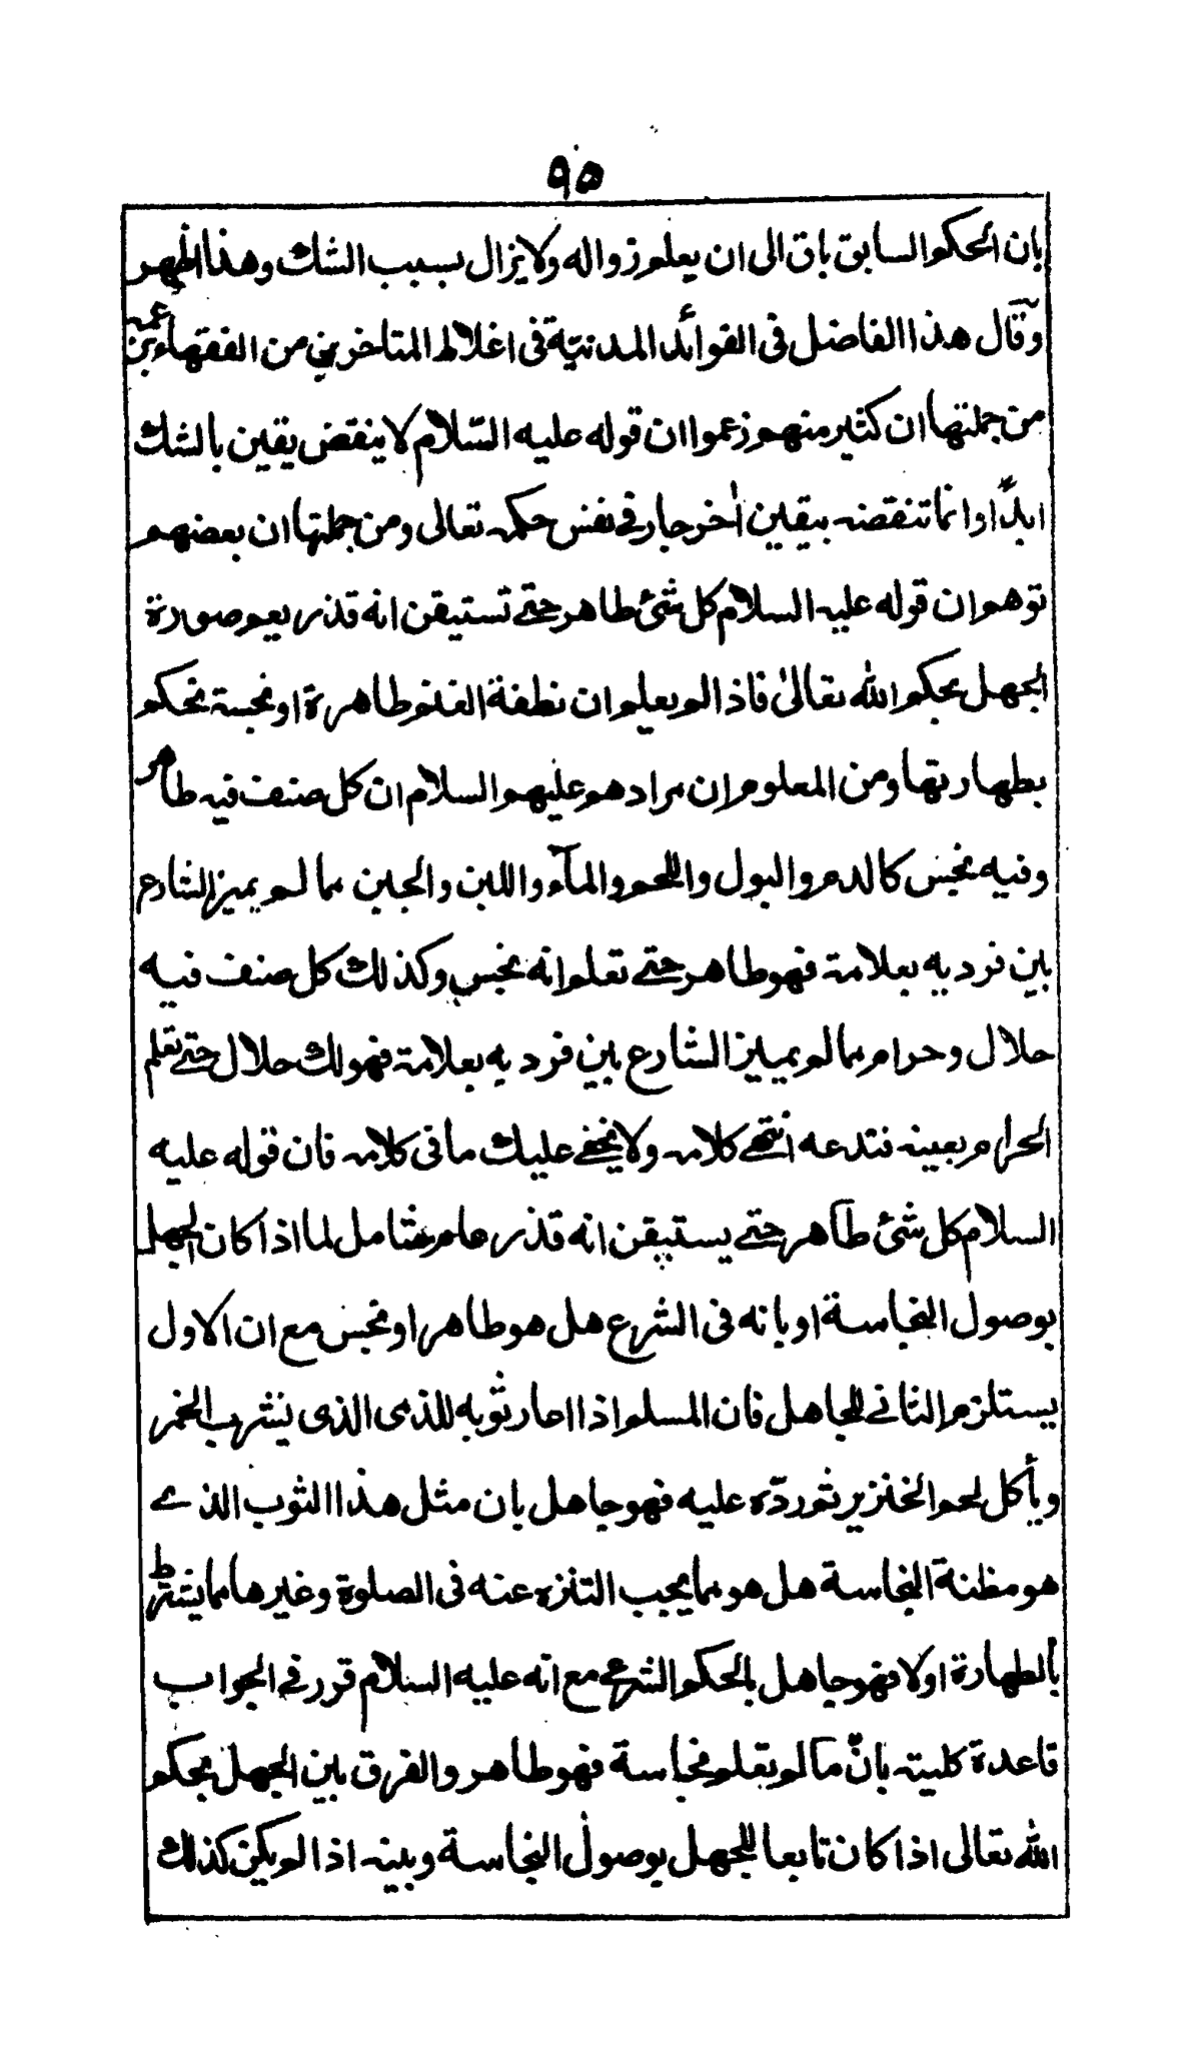 ٩٥
بان الحكم السابق باق الى ان يعلم زواله ولا يزال بسبب الشك وهذا اظهر
وقال هذا الفاضل فى الفوائد المدنيّة فى اغلاط المتاخرين من الفقهاء
من جملتها ان كثير منهم زعموا ان قوله عليه السّلام لا ينقض يقين بالشك
ابدًا وانما تنقضه بيقين اٰخر جار فى نفس حكمه تعالى ومن جملتها ان بعضهم
توهم ان قوله عليه السلام كل شئ طاهر حتے تستيقن انه قذر يعم صورة
الجهل بحكم الله تعالىٰ فاذا لم يعلم ان نطفة الغنم طاهرة او نجسة نحكم
بطهارتها ومن المعلوم ان مرادهم عليهم السلام ان كل صنف فيه طاهر
وفيه نجس كالدم والبول واللحم والمآء واللبن والجبن مما لم يميز الشارع
بين فرديه بعلامة فهو طاهر حتے تعلم انه نجس وكذلك كل صنف فيه
حلال وحرام مما لم يميز الشارع بين فرديه بعلامة فهو لك حلال حتے تعلم
الحرام بعينه فتدعه انتهے كلامه ولا يخفے عليك ما فى كلامه فان قوله عليه
السلام كل شئ طاهر حتے يستيقن انه قذر عام شامل لما اذا كان الجهل
بوصول النجاسة او بانه فى الشرع هل هو طاهر او نجس مع ان الاول
يستلزم الثانے للجاهل فان المسلم اذا اعار ثوبه للذمى الذى يشرب الخمر
ويأكل لحم الخنزير ثم ردّه عليه فهو جاهل بان مثل هذا الثوب الذے
هو مظنة النجاسة هل هو مما يجب التنزه عنه فى الصلوة وغيرها مما يشترط
بالطهارة اولا فهو جاهل بالحكم الشرعے مع انه عليه السلام قرر فى الجواب
قاعدة كلية بانّ ما لم يعلم نجاسة فهو طاهر والفرق بين الجهل بحكم
الله تعالى اذا كان تابعا للجهل بوصول النجاسة وبينه اذا لم يكن كذلك